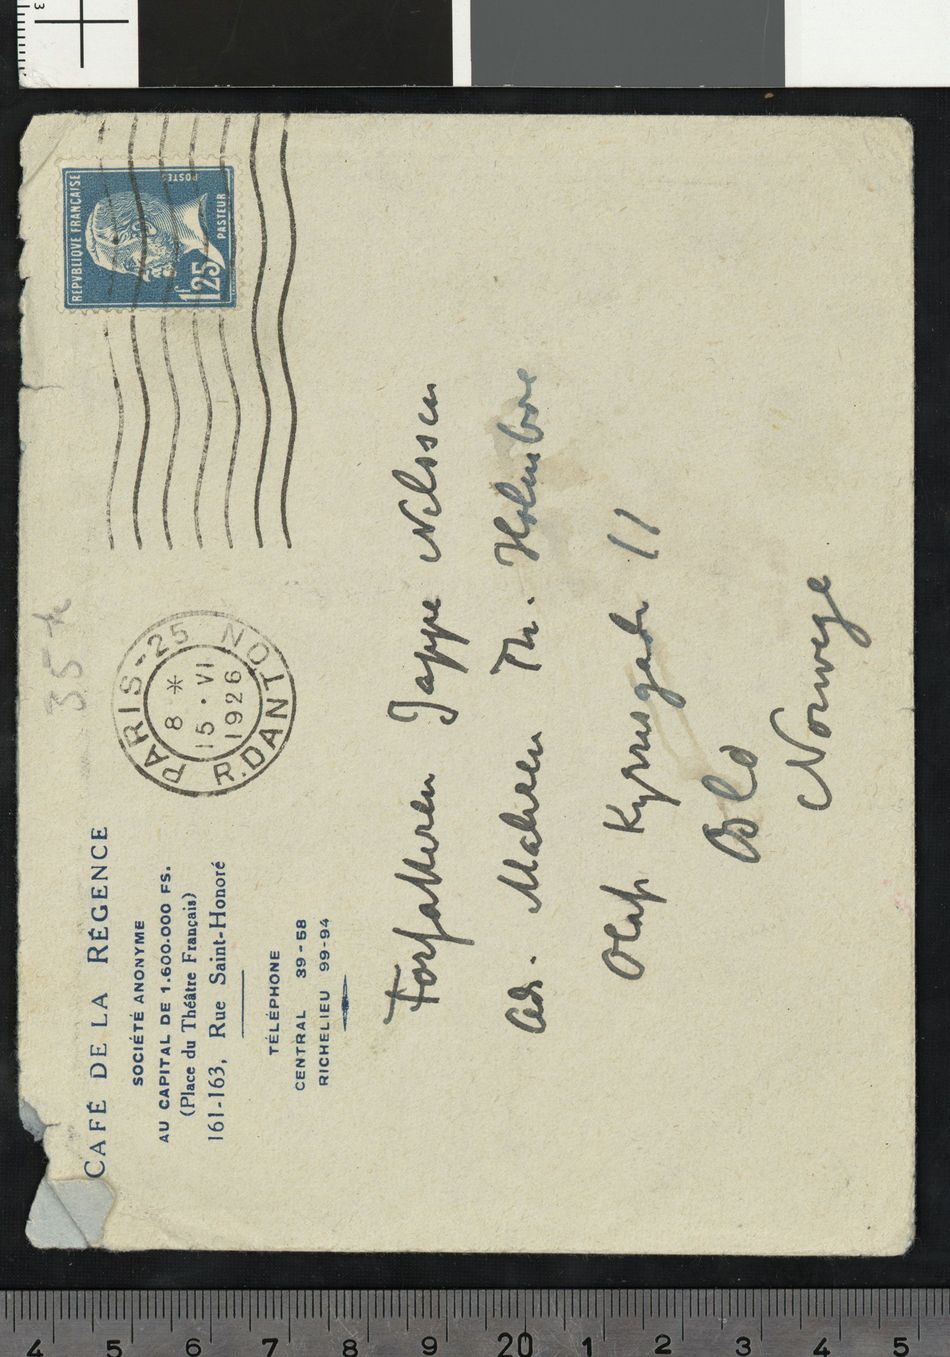 CAFÉ DE LA RÉGENCE
SOCIÉTÉ ANONYME
AU CAPITAL DE 1.600.000 FS.
(Place du Théâtre Français)
161-163, Rue Saint-Honoré
TÉLÉPHONE
CENTRAL 39-58
RICHELIEU 99-94
35
PARIS-25
8 *
15 · VI
1926
R. DANTON
REPVBLIQVE FRANÇAISE
POSTES
PASTEUR
1f25
Forfatteren Jappe Nilssen
adr. Maleren Th. Holmboe
Olaf Kyrresgade 11
Oslo
Norwege
3
4 5 6 7 8 9 20 1 2 3 4 5